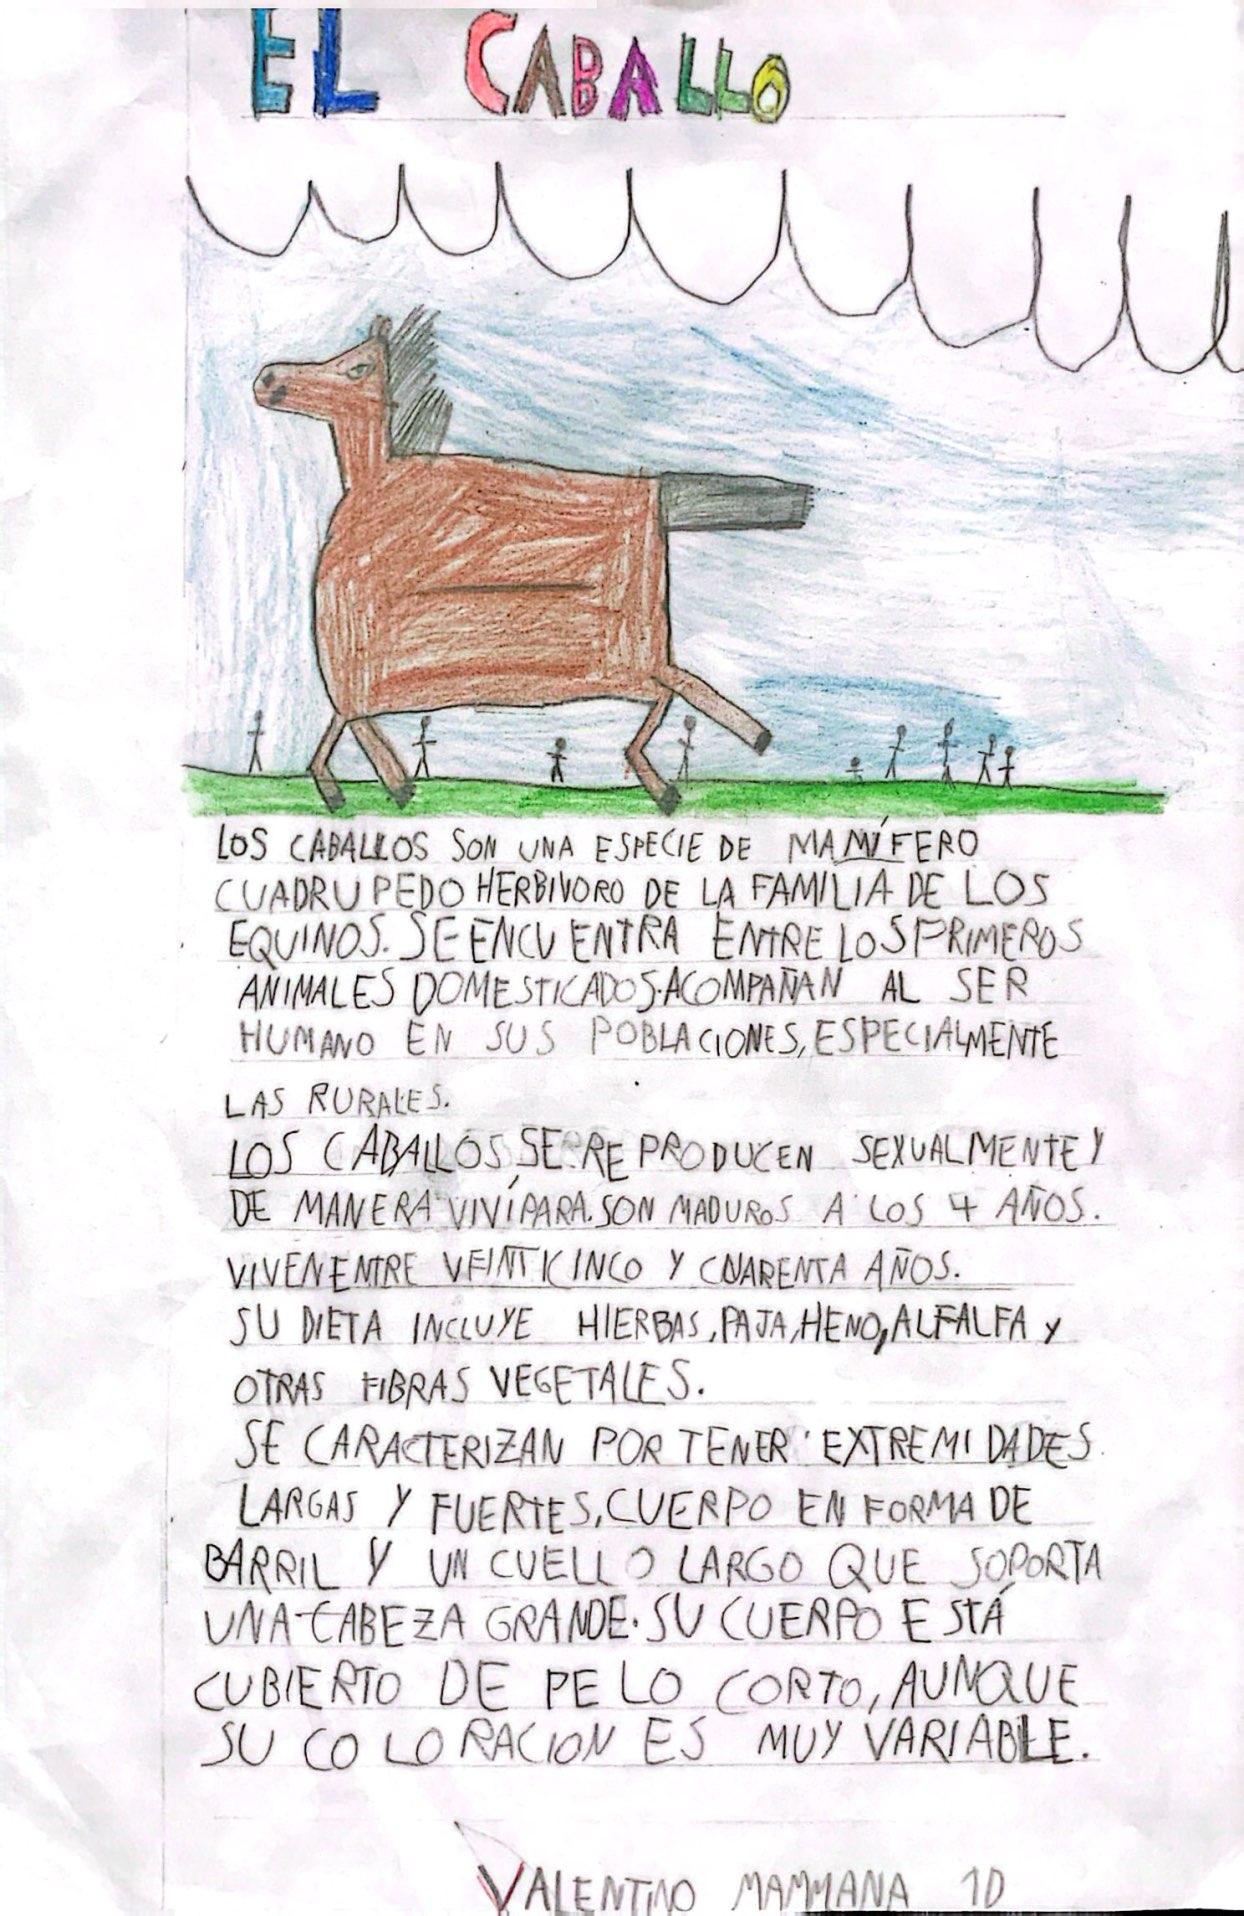 EL CABALLO
LOS CABALLOS SON UNA ESPECIE DE MAMÍFERO
CUADRUPEDO HERBIVORO DE LA FAMILIA DE LOS
EQUINOS. SE ENCUENTRA ENTRE LOS PRIMEROS
ANIMALES DOMESTICADOS. ACOMPAÑAN AL SER
HUMANO EN SUS POBLACIONES, ESPECIALMENTE
LAS RURALES.
LOS CABALLOS SE REPRODUCEN SEXUALMENTE Y
DE MANERA VIVÍPARA. SON MADUROS A LOS 4 AÑOS.
VIVEN ENTRE VEINTICINCO Y CUARENTA AÑOS.
SU DIETA INCLUYE HIERBAS, PAJA, HENO, ALFALFA Y
OTRAS FIBRAS VEGETALES.
SE CARACTERIZAN POR TENER EXTREMIDADES
LARGAS Y FUERTES, CUERPO EN FORMA DE
BARRIL Y UN CUELLO LARGO QUE SOPORTA
UNA CABEZA GRANDE. SU CUERPO ESTÁ
CUBIERTO DE PELO CORTO, AUNQUE
SU COLORACION ES MUY VARIABLE.
VALENTINO MAMMANA 1D